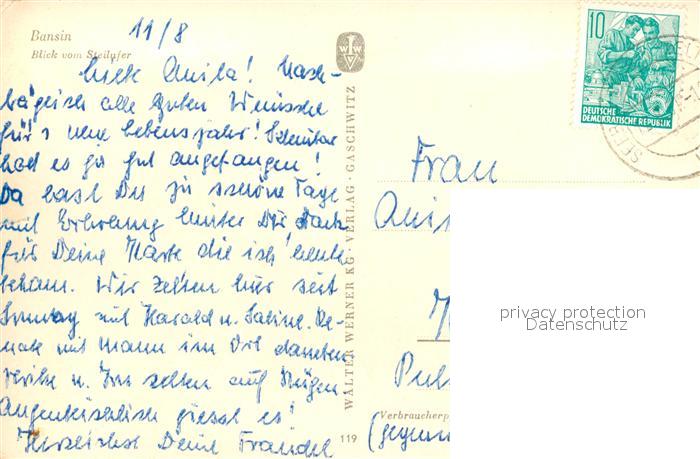 Bansin
Blick vom Steilufer
11/8
Anita! Nach-
träglich alle guten Wünsche
für's neue Lebensjahr! Scheinbar
hat es ja gut angefangen!
Da hast Du ja schöne Tage
mit Erholung hinter Dir. Dank
für Deine Karte die ich heute
bekam. Wir zelten hier seit
Sonntag mit Harald u. Sabine. Re-
nate mit Mann im Ort daneben
u. zelten auf Rügen
Augenblicklich giesst es!
Herzlichst Deine
WALTER WERNER KG · VERLAG · GASCHWITZ
119
10
DEUTSCHE
DEMOKRATISCHE REPUBLIK
Frau
Verbraucherp
privacy protection
Datenschutz